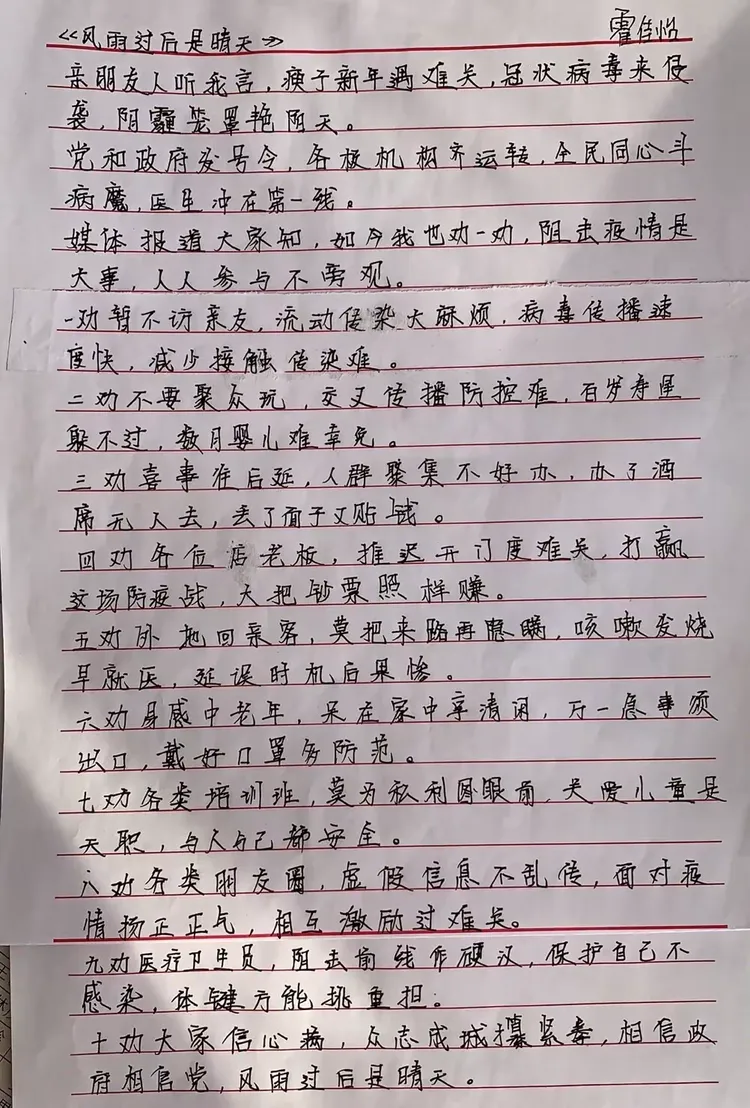 《风雨过后是晴天》 霍佳怡
亲朋友人听我言，庚子新年遇难关，冠状病毒来侵
袭，阴霾笼罩艳阳天。
党和政府发号令，各级机构齐运转，全民同心斗
病魔，医生冲在第一线。
媒体报道大家知，如今我也劝一劝，阻击疫情是
大事，人人参与不旁观。
一劝暂不访亲友，流动传染大麻烦，病毒传播速
度快，减少接触传染难。
二劝不要聚众玩，交叉传播防控难，百岁寿星
躲不过，数月婴儿难幸免。
三劝喜事往后延，人群聚集不好办，办了酒
席无人去，丢了面子又贴钱。
四劝各位店老板，推迟开门度难关，打赢
这场防疫战，大把钞票照样赚。
五劝外地回亲客，莫把来路再隐瞒，咳嗽发烧
早就医，延误时机后果惨。
六劝身感中老年，呆在家中享清闲，万一急事须
出口，戴好口罩多防范。
七劝各类培训班，莫为私利图眼前，关爱儿童是
天职，与人与己都安全。
八劝各类朋友圈，虚假信息不乱传，面对疫
情扬正正气，相互激励过难关。
九劝医疗卫生员，阻击前线作硬汉，保护自己不
感染，体键方能挑重担。
十劝大家信心满，众志成城攥紧拳，相信政
府相信党，风雨过后是晴天。